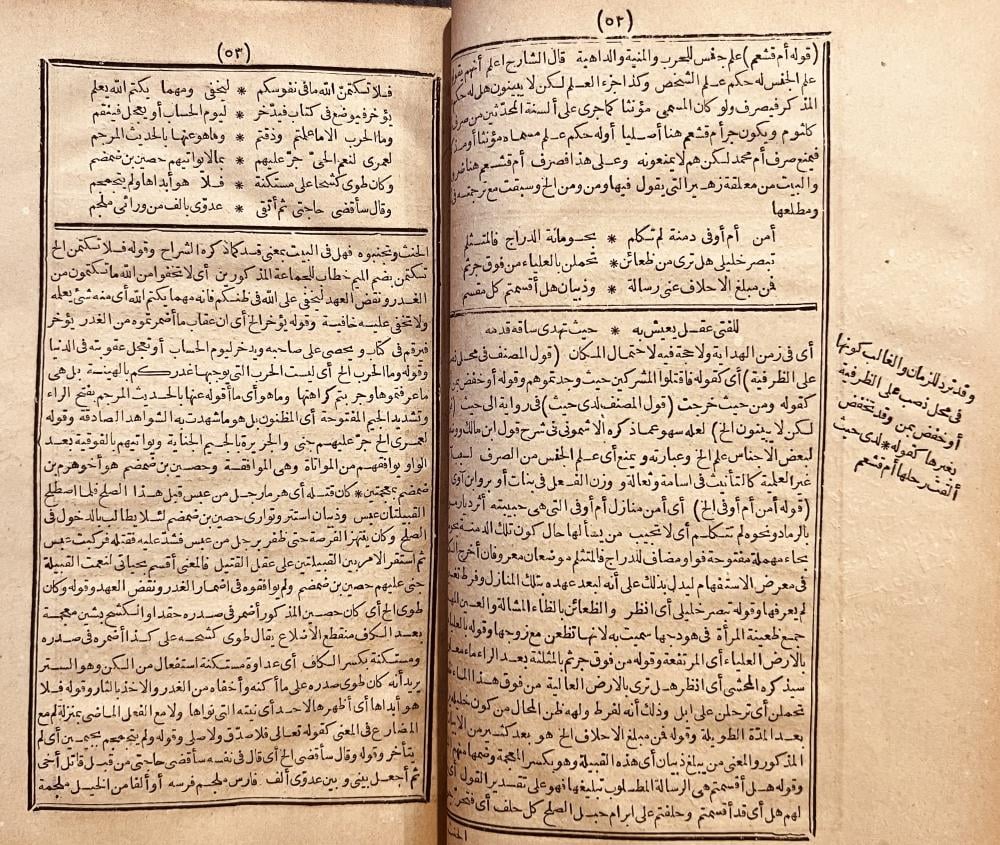 (٥٢)
(قوله أم قشعم) علم جنس للحرب والمنية والداهية قال الشارح اعلم أنهم
علم الجنس له حكم علم الشخص وكذا جزء العلم لكن لا يبينون هل له حكم
المذكر فيصرف ولو كان المسمى مؤنثا كما جرى على ألسنة المحدثين من صرف
كلثوم ويكون جر أم قشعم هنا أصليا أوله حكم علم مسماه مؤنثا
فيمنع صرف أم محمد لكن هم لا يمنعونه وعلى هذا فصرف أم قشعم هنا
والبيت من معلقة زهير التي يقول فيها ومن ومن الخ وسبقت مع ترجمته
ومطلعها
أمن أم أوفى دمنة لم تكلم * بحومانة الدراج فالمتثلم
تبصر خليلي هل ترى من ظعائن * تحملن بالعلياء من فوق جرثم
فمن مبلغ الاحلاف عني رسالة * وذبيان هل أقسمتم كل مقسم
للفتى عقل يعيش به * حيث تهدي ساقه قدمه
أى فى زمن الهداية ولا حجة فيه لاحتمال المكان (قول المصنف فى محل
على الظرفية) أى كقوله فاقتلوا المشركين حيث وجدتموهم وقوله أو خفض بمن
كقوله ومن حيث خرجت (قول المصنف لدى حيث) فى رواية الى حيث
لكن لا يبينون الخ) لعله سهو عما ذكره الاشمونى فى شرح قول ابن مالك
لبعض الاجناس علم الخ وعبارته ويمنع أى علم الجنس من الصرف لسبب
غير العلمية كالتأنيث فى اسامة وثعالة ووزن الفعل فى بنات أو بر وابن آوى
(قوله أمن أم أوفى الخ) أى أمن منازل أم أوفى التى هى حبيبته أثر دار
بالرماد ونحوه لم تتكلم أى لا تجيب من يسألها حال كون تلك الدمنة
بحاء مهملة مفتوحة فواو مضاف للدراج فالمتثلم موضعان معروفان أخرج
فى معرض الاستفهام ليدل بذلك على أنه لبعد عهده بتلك المنازل وفرط
لم يعرفها وقوله تبصر خليلى أى انظر والظعائن بالظاء المشالة والعين
جمع ظعينة المرأة فى هودجها سميت به لانها تظعن مع زوجها وقوله بالعلياء
بالارض العلياء أى المرتفعة وقوله من فوق جرثم بالمثلثة بعد الراء ماء
سيذكره المحشى أى انظر هل ترى بالارض العالية من فوق هذا الماء
تحملن أى ترحلن على ابل وذلك أنه لفرط ولهه ظن المحال من كون
بعد المدة الطويلة وقوله فمن مبلغ الاحلاف الخ هو بعد كثير من
المذكور والمعنى من يبلغ ذبيان أى هذه القبيلة وهو بكسر المعجمة وضمها
وقوله هل أقسمتم هى الرسالة المطلوب تبليغها فهو على تقدير القول أى
لهم هل أى قد أقسمتم وحلفتم على ابرام حبل الصلح كل حلف أى
الحنث
وقد ترد للزمان والغالب كونها
فى محل نصب على الظرفية
أو خفض بمن وقد تخفض
بغيرها كقوله * لدى حيث
ألقت رحلها أم قشعم
(٥٣)
فلا تكتمن الله ما فى نفوسكم * ليخفى ومهما يكتم الله يعلم
يؤخر فيوضع فى كتاب فيدّخر * ليوم الحساب أو يعجل فينقم
وما الحرب الا ما علمتم وذقتم * وما هو عنها بالحديث المرجم
لعمرى لنعم الحىّ جرّ عليهم * بما لا يواتيهم حصين بن ضمضم
وكان طوى كشحا على مستكنة * فلا هو أبداها ولم يتجمجم
وقال سأقضى حاجتى ثم أتقى * عدوّى بألف من ورائى ملجم
الحنث وتجنبوه فهل فى البيت بمعنى قد كما ذكره الشراح وقوله فلا تكتمن الخ
تكتمن بضم الميم خطاب للجماعة المذكورين أى لا تخفوا من الله ما تكتمون من
الغدر ونقض العهد ليخفى على الله فى ظنكم فانه مهما يكتم الله أى منه شئ يعلمه
ولا تخفى عليه خافية وقوله يؤخر الخ أى ان عقاب ما أضمرتموه من الغدر يؤخر
فيرقم فى كتاب ويحصى على صاحبه ويدخر ليوم الحساب أو تعجل عقوبته فى الدنيا
وقوله وما الحرب الخ أى ليست الحرب التى يوجبها غدركم بالهينة بل هى
ما عرفتموها وجربتم كراهتها وما هو أى ما أقوله عنها بالحديث المرجم بفتح الراء
وتشديد الجيم المفتوحة أى المظنون بل هو ما شهدت به الشواهد الصادقة وقوله
لعمرى الخ جرّ عليهم جنى والجريرة بالجيم الجناية ويواتيهم بالفوقية بعد
الواو يوافقهم من المواتاة وهى الموافقة وحصين بن ضمضم هو أخو هرم بن
ضمضم بمعجمتين * كان قتله أى هرما رجل من عبس قبل هذا الصلح فلما اصطلح
القبيلتان عبس وذبيان استتر وتوارى حصين بن ضمضم لئلا يطالب بالدخول فى
الصلح وكان ينتهز الفرصة حتى ظفر برجل من عبس فشد عليه فقتله فركبت عبس
ثم استقر الامر بين القبيلتين على عقل القتيل فالمعنى أقسم بحياتى لنعمت القبيلة
جنى عليهم حصين بن ضمضم ولم يوافقوه فى اضمار الغدر ونقض العهد وقوله وكان
طوى الخ أى كان حصين المذكور أضمر فى صدره حقدا والكشح بشين معجمة
بعد الكاف منقطع الأضلاع يقال طوى كشحه على كذا أضمره فى صدره
ومستكنة بكسر الكاف أى عداوة مستكنة استفعال من الكن وهو الستر
يريد أنه كان طوى صدره على ما أكنه وأخفاه من الغدر والاخذ بالثار وقوله فلا
هو أبداها أى أظهرها لاحد أى نيته التى نواها ولا مع الفعل الماضى بمنزلة لم مع
المضارع فى المعنى كقوله تعالى فلا صدق ولا صلى وقوله ولم يتجمجم بجيمين أى لم
يتأخر وقوله وقال سأقضى الخ أى قال فى نفسه سأقضى حاجتى من قبل قاتل أخى
ثم أجعل بينى وبين عدوّى ألف فارس ملجم فرسه أو ألفا من الخيل ملجمة